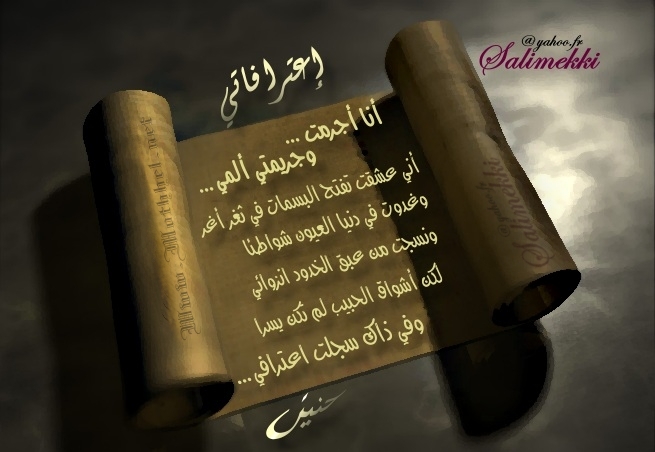 @yahoo.fr
Salimekki
إعترافاتي
أنا أجرمت ...
وجريمتي ألمي ...
أني عشقت تفتح البسمات في ثغر أغر
وغدوت في دنيا العيون شواطئا
ونسجت من عبق الخدود انزوائي
لكن أشواق الحبيب لم تكن يسرا
وفي ذاك سجلت اعترافي ...
حنين
Salimekki